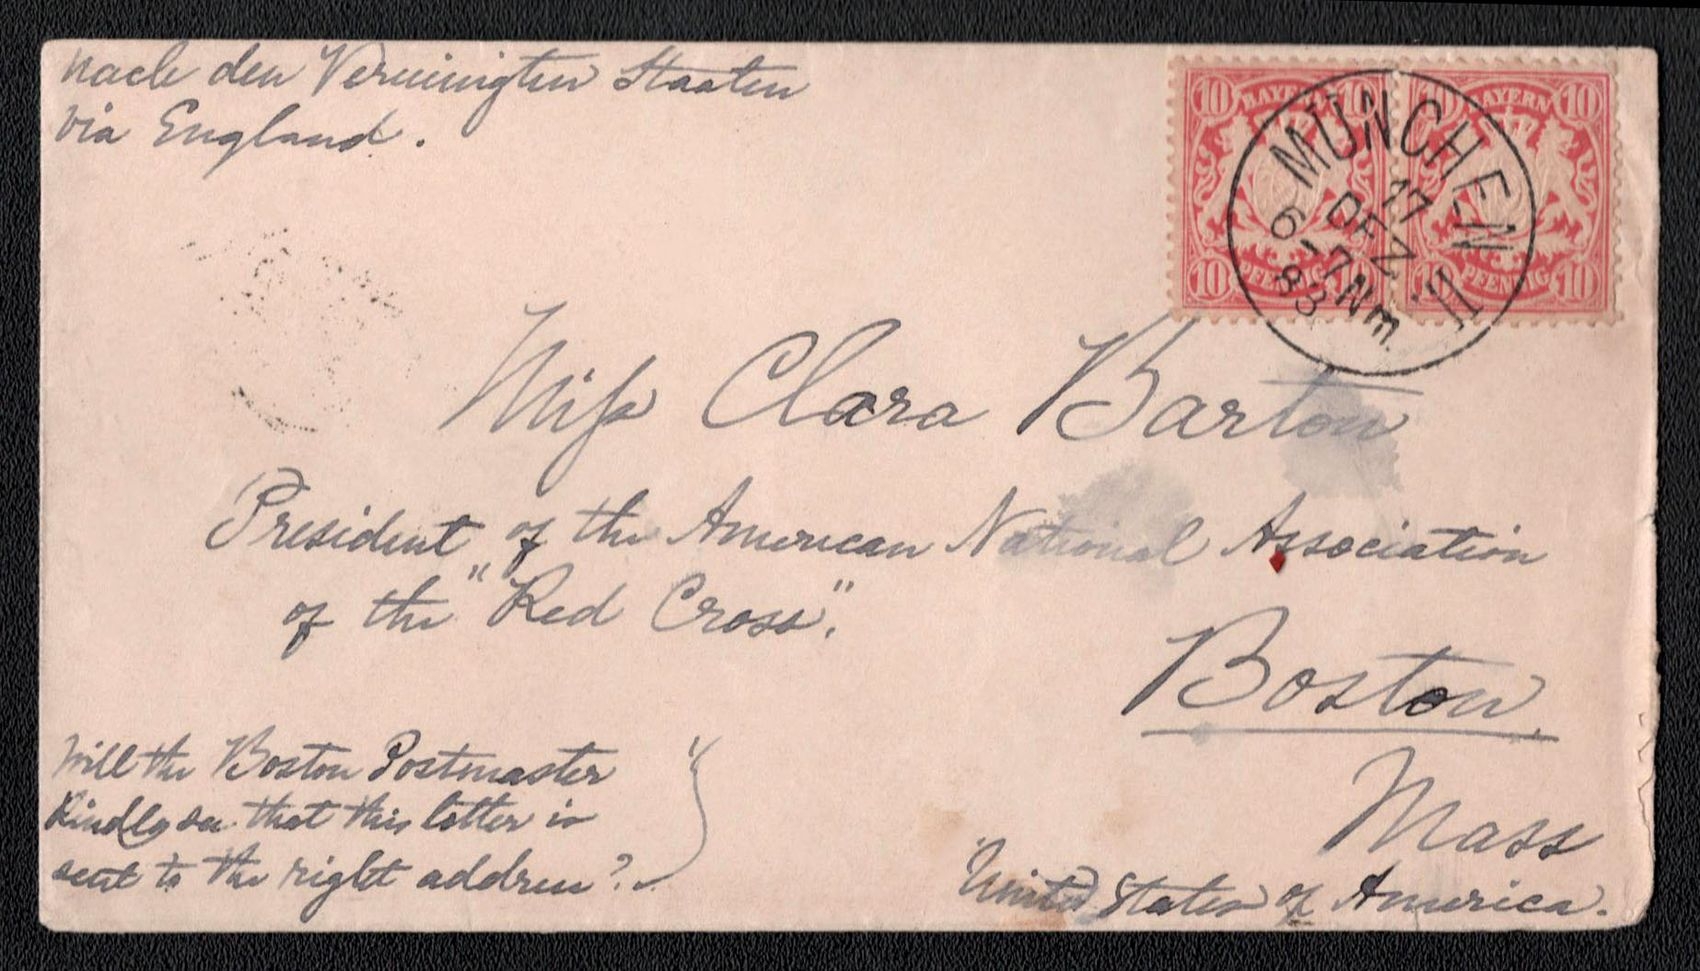 nach den Vereinigten Staaten
via England.
10 BAYERN 10
10 PFENNIG 10
10 BAYERN 10
10 PFENNIG 10
MÜNCHEN II.
17
DEZ
6-7 Nm.
83
Miss Clara Barton
President of the American National Association
of the "Red Cross".
Boston
Mass
United States of America.
Will the Boston Postmaster
kindly see that this letter is
sent to the right address?